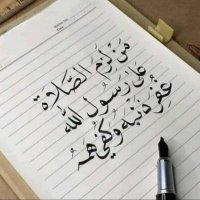 مَنْ لَزِمَ الصَّلَاة
عَلَىٰ رَسُولِ اللّٰه
غُفِرَ ذَنْبُهُ وَكُفِيَ هَمَّهُ